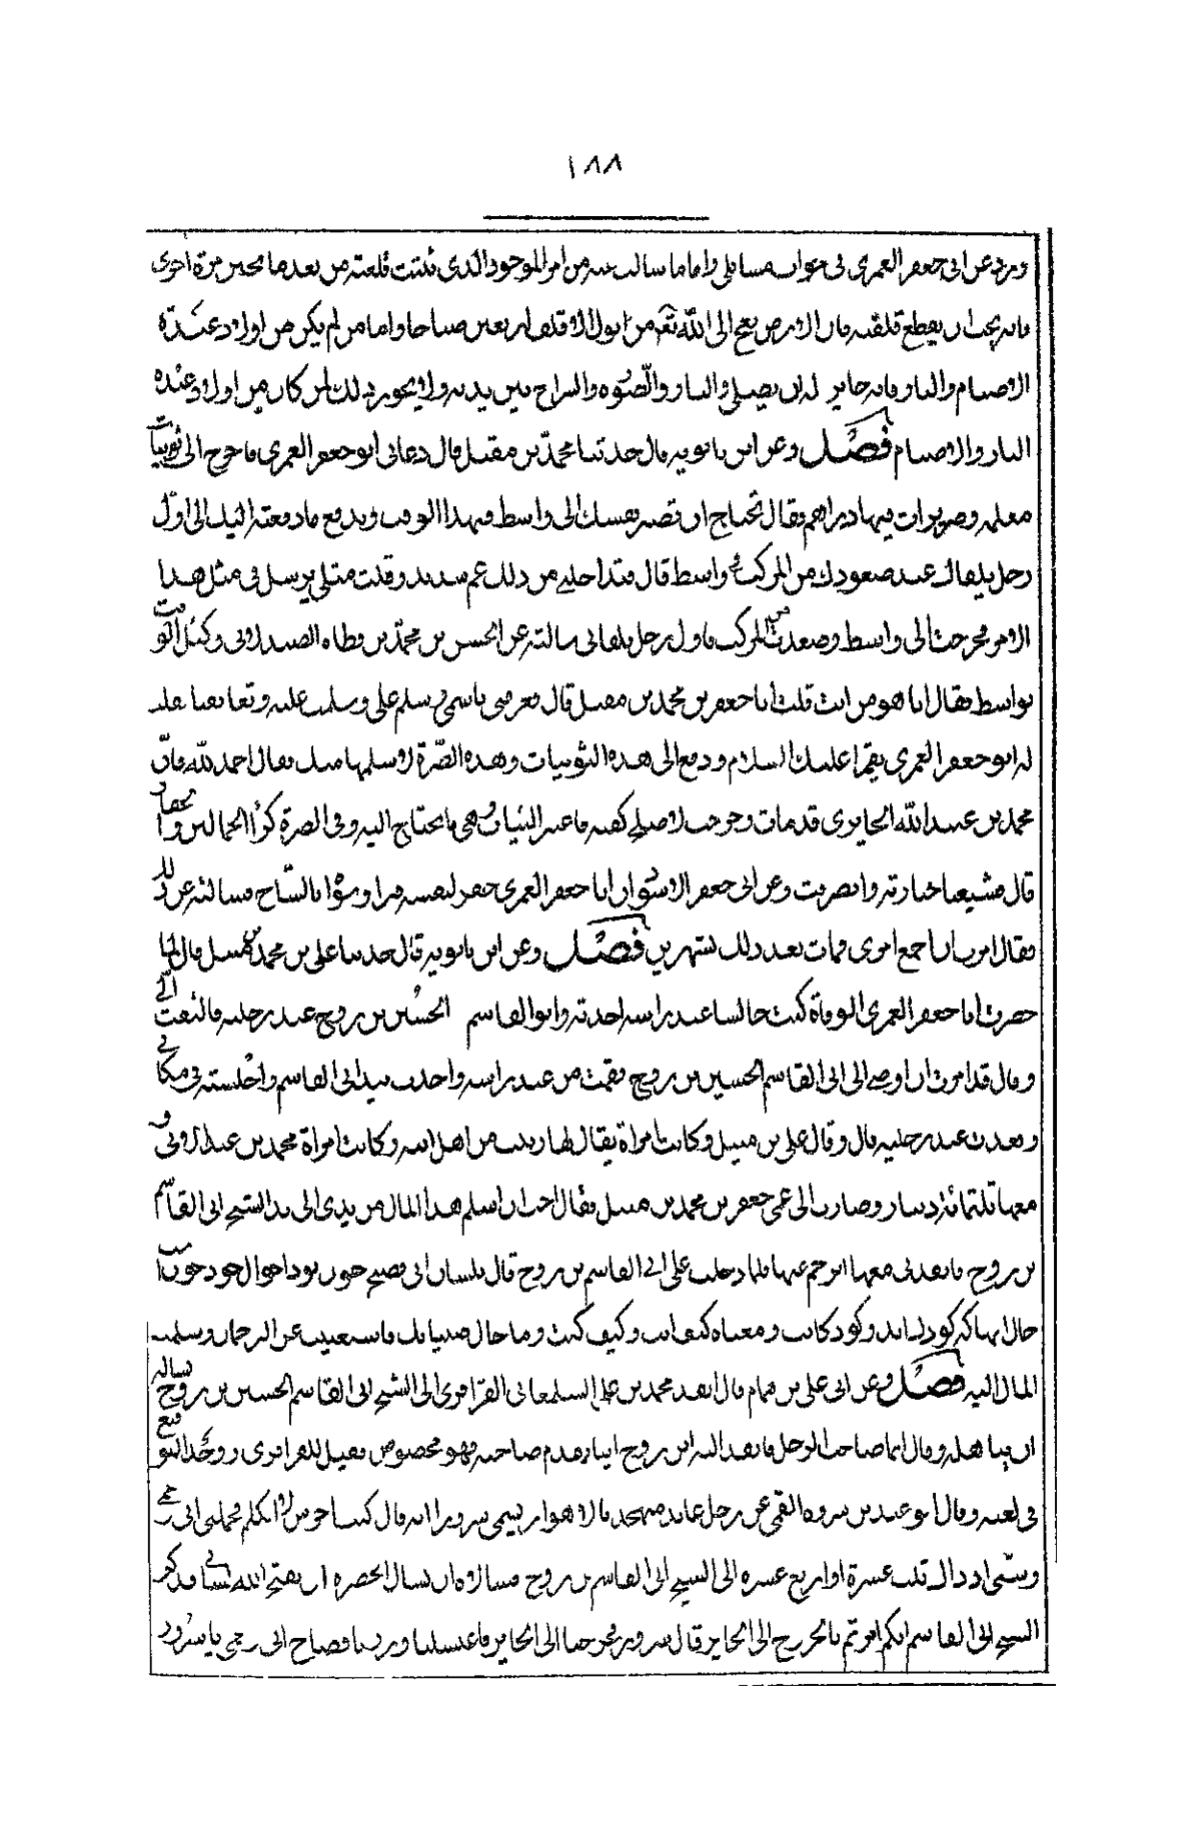 ١٨٨
ورد عن ابى جعفر العمرى فى جواب مسائلى واما ما سالت عنه من امر المولود الذى تنبت قلفته من بعد ما يختن مرة اخرى
فانه يجب ان يقطع قلفته فان الارض يضج الى الله تعه من ابوال الاقلف اربعين صباحا واما من لم يكن من اولاد عبدة
الاصنام والنار فانه جايز له ان يصلى والنار والصوه والسراج بين يديه ولا يجوز ذلك لمن كان من اولاد عبده
النار والاصنام فصل وعن ابن بابويه قال حدثنا محمد بن مقيل قال دعانى ابو جعفر العمرى فاخرج الى ثويبات
معلمه وصريرات فيها دراهم فقال تحتاج ان تصير بنفسك الى واسط فى هذا الوقت ويدفع ما دفعته اليك الى اول
رجل يلقاك عند صعودك من المركب فى واسط قال فتداخلنى من ذلك غم شديد وقلت مثلى يرسل فى مثل هذا
الامر فخرجت الى واسط وصعدت من المركب فاول رجل يلقانى سالته عن الحسن بن محمد بن قطاه الصيدلانى وكيل الوقت
بواسط فقال انا هو من انت قلت انا جعفر بن محمد بن مقيل قال فعرفنى باسمى وسلم على وسلمت عليه وتعانقنا فقلت
له ابو جعفر العمرى يقرا عليك السلام ودفع الى هذه الثويبات وهذه الصرة لاسلمها اليك فقال الحمد لله فان
محمد بن عبد الله الحايرى قد مات وخرجت لاصلح كفنه فاعبر الثياب وهى ما يحتاج اليه وفى الصرة كرا الحمالين والحفار
قال فشيعنا جنازته وانصرفت وعن ابى جعفر الاسود ان ابا جعفر العمرى حفر لنفسه قبرا وسواه بالساج فسالته عن ذلك
فقال امرت ان اجمع امرى فمات بعد ذلك بشهرين فصل وعن ابن بابويه قال حدثنا على بن محمد بن مقيل قال لما
حضرت ابا جعفر العمرى الوفاة كنت جالسا عند راسه احدثه وابو القاسم الحسين بن روح عند رجليه فالتفت الى
وقال قد امرت ان اوصى الى ابى القاسم الحسين بن روح فقمت من عند راسه واخذت بيد ابى القاسم واجلسته فى مكانى
وقعدت عند رجليه قال وقال على بن مقيل وكانت امراة يقال لها زينب من اهل ابه وكانت امراة محمد بن عبد الابى و
معها ثلثمائة دينار وصارت الى عمى جعفر بن محمد بن مقيل فقال احب ان اسلم هذا المال من يدى الى يد الشيخ ابى القاسم
بن روح فانفذنى معها اترجم عنها فلما دخلت على ابى القاسم بن روح قال بلسان ابى فصيح
المال اليه فصل وعن ابى على بن همام قال انفذ محمد بن على السلمغانى القزاقرى الى الشيخ ابى القاسم الحسين بن روح يساله
ان يباهله وقال انا صاحب الرجل فانفذ اليه ابن روح اينا تقدم صاحبه فهو مخصوم فقتل القزاقرى وخرج التوقيع
فى لعنه وقال ابو عبد بن سوره القمى عن رجل عابد متهجد بالاهواز يسمى سرورا انه قال كنت اخرس لا اتكلم فحملنى ابى وعمى
وسنى اذ ذاك ثلث عشرة او اربع عشره الى الشيخ ابى القاسم بن روح فسالاه ان يسال الحضره ان يفتح الله لسانى فذكر
الشيخ ابى القاسم انكم امرتم بالخروج الى الحاير قال سرور فخرجنا الى الحاير فاغتسلنا وزرنا فصاح ابى وعمى يا سرور